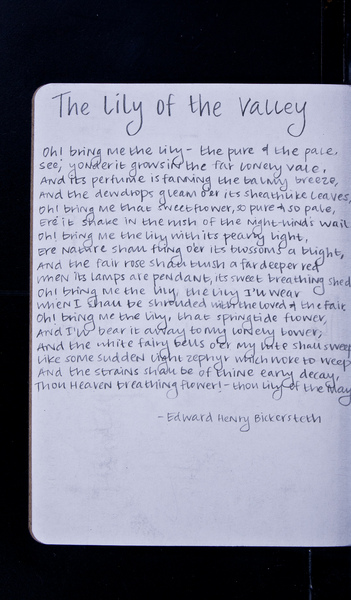 The Lily of the Valley
Oh! bring me the lily - the pure & the pale,
See, yonder it grows in the far lonely vale,
And its perfume is fanning the balmy breeze,
And the dewdrops gleam o'er its sheathlike leaves,
Oh! bring me that sweet flower, so pure & so pale,
Ere it shake in the rush of the night-wind's wail
Oh! bring me the lily with its pearly light,
Ere Nature shall fling o'er its blossoms a blight,
And the fair rose shall blush a far deeper red
When its lamps are pendant, its sweet breathing shed
Oh! bring me the lily, the lily I'll wear
When I shall be shrouded with the loved & the fair
Oh! bring me the lily, that springtide flower,
And I'll bear it away to my lonely bower,
And the white fairy bells o'er my lute shall sweep
Like some sudden light zephyr which woke to weep
And the strains shall be of thine early decay,
Thou Heaven breathing flower! - thou lily of the May
- Edward Henry Bickersteth